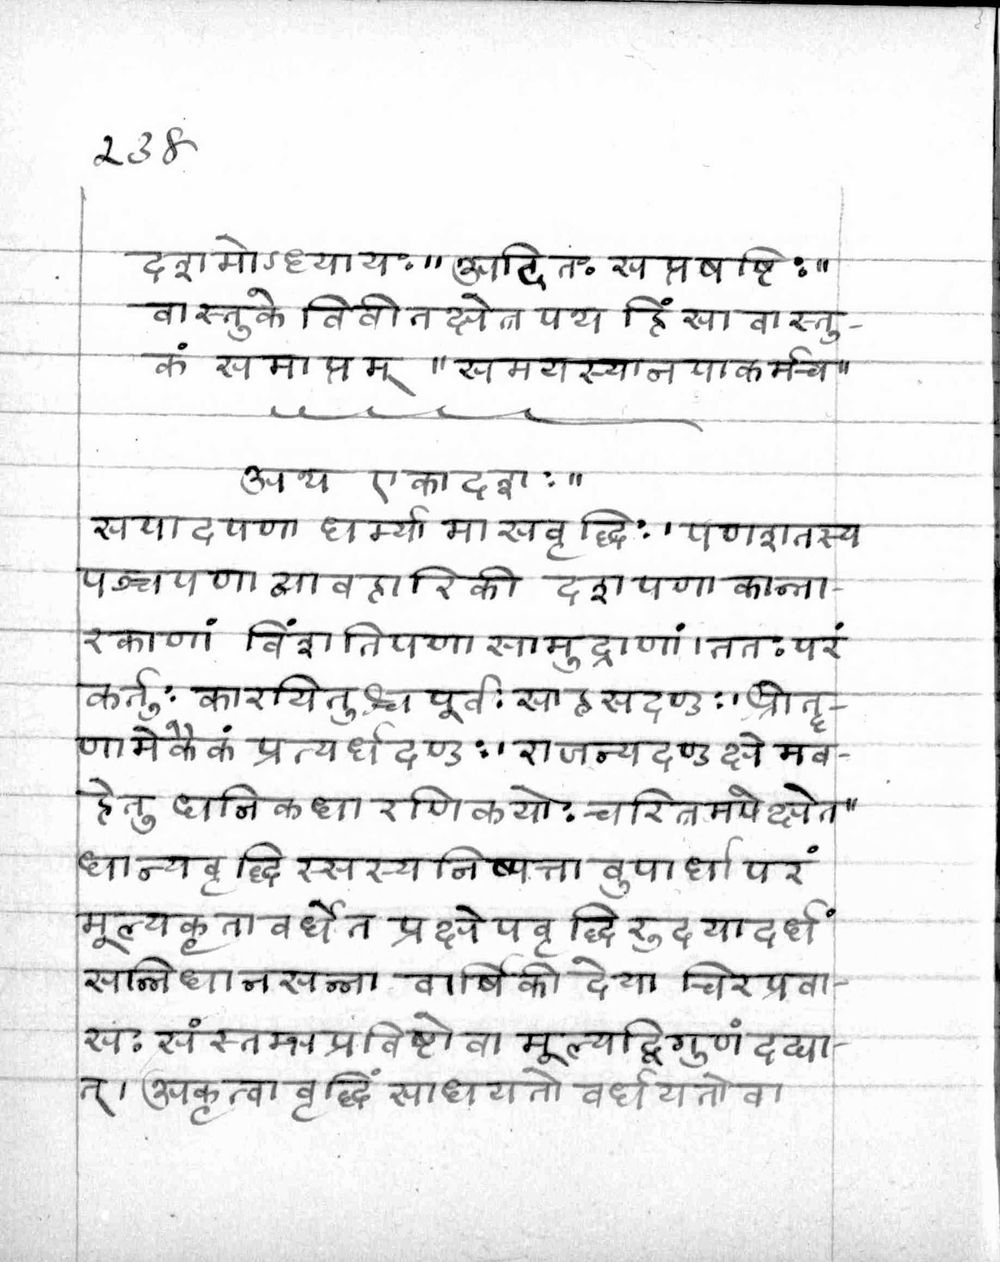 238
दशमोऽध्यायः॥ आदितः सप्तषष्टिः॥
वास्तुके विवीतक्षेत्रपथ हिंसा वास्तु-
कं समाप्तम् ॥ समयस्यानपाकर्मच॥
अथ एकादशः॥
सपादपणा धर्म्या मासवृद्धिः। पणशतस्य
पञ्चपणा व्यावहारिकी दशपणा कान्ता-
रकाणां विंशतिपणा सामुद्राणां। ततः परं
कर्तुः कारयितुश्च पूर्वः साहसदण्डः। श्रोतॄ-
णामेकैकं प्रत्यर्धदण्डः। राजन्यदण्ड क्षेमव-
हेतु धनिकधारणिकयोः चरित्रमपेक्षेत॥
धान्यवृद्धिस्सस्यनिष्पत्तावुपार्धापरं
मूल्यकृता वर्धेत प्रक्षेपवृद्धिरुदयादर्धं
सन्निधानसन्ना वार्षिकी देया चिरप्रवा-
सः संस्तम्भप्रविष्टो वा मूल्यद्विगुणं दद्या-
त्। अकृत्वा वृद्धिं साधयतो वर्धयतो वा